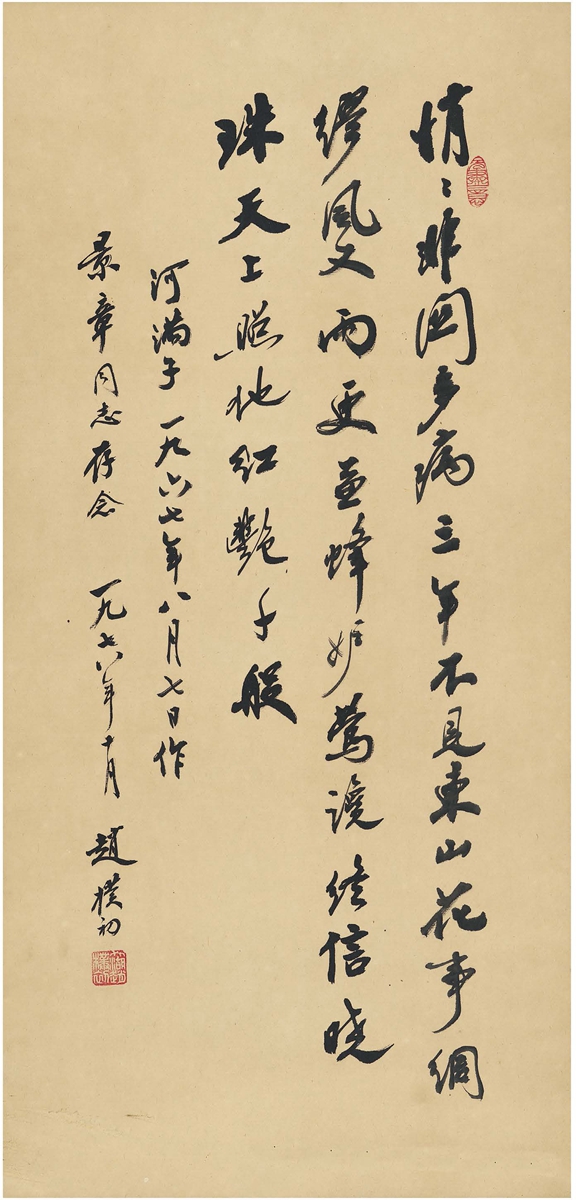 悄〻非関多病三年不見東山花事綢
繆風又雨更兼蜂妒鶯讒終信曉
珠天上照他紅艷千般
河满子一九六七年八月七日作
景章同志存念 一九七八年十月 趙樸初